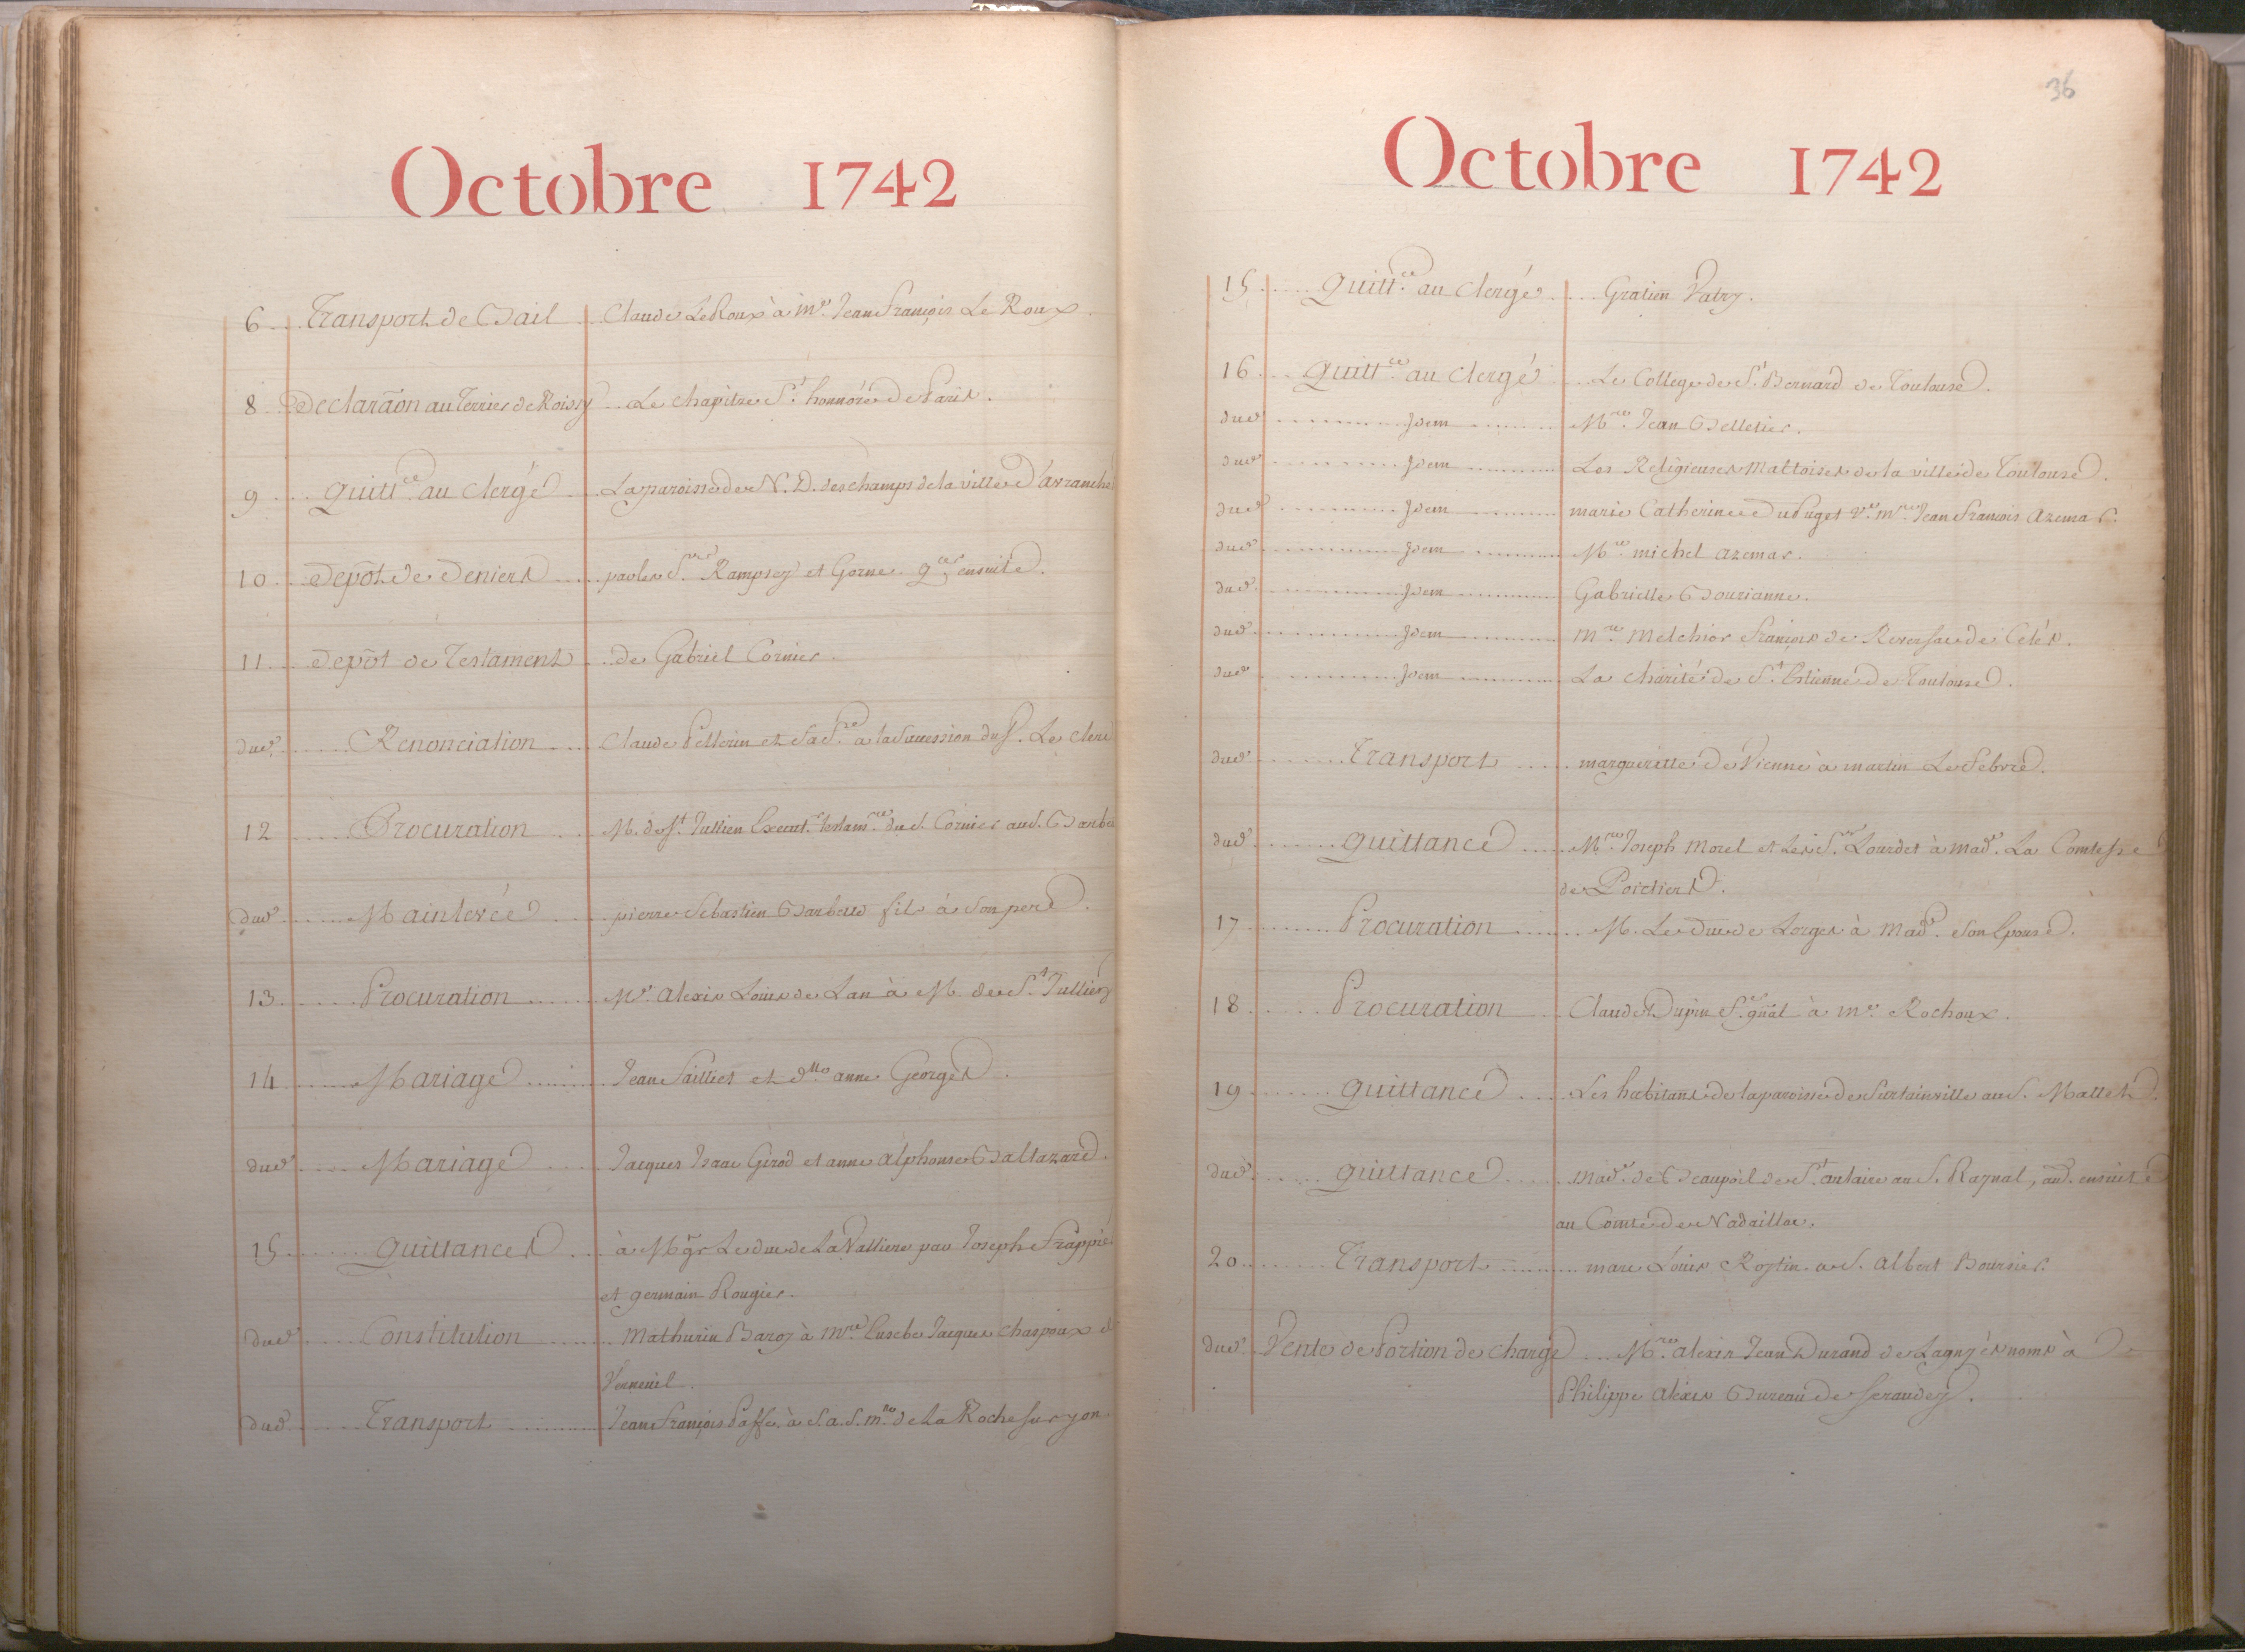 Octobre 1742
6 Transport de Bail Claude Le Roux à Me. Jean François Le Roux.
8 Declaraõn au Terrier de Roissy Le chapitre St. honnoré de Paris.
9 Quittce. au Clergé La paroisse de N. D. des champs de la ville d'avranche
10 Depôt de Deniers par les Srs. Rampsey et Gorne. qces ensuite.
11 Depôt de Testament de Gabriel Cornier.
dud. Renonciation Claude Pellerin et sa fe. a la Succession du S. Le Clerc
12 Procuration M. de St. Jullien Execut. testamre. dud. Cornier au S.
dud. Mainlevée pierre Sebastien fils à Son pere.
13 Procuration Me. Alexis Louis de Lan à M. de St. Jullien
14 Mariage Jean Saillier et dlle. anne Georges.
dud. Mariage Jacques Isaac Girod et anne alphonse Baltazard.
15 Quittances à Mgr Le duc de La Valliere par Joseph Frappié
et germain Rougier.
dud. Constitution Mathurin Baroy à Mre. Eusebe Jacques Chaspoux de
Verneuil.
dud. Transport Jean François Passe, à S. a. S. mlle. de La Roche sur yon
36
Octobre 1742
15 Quittce. au Clergé Gratien Patry.
16 Quittce. au Clergé Le College de St. Bernard de Toulouse.
dud. Idem Mre. Jean Pelletier.
dud. Idem Les Religieuses Maltoises de la ville de Toulouse.
dud. Idem marie Catherine Dupuget Ve. mre. Jean François Azemar.
dud. Idem Mre. michel azemar.
dud. Idem Gabrielle Bourianne.
dud. Idem mre. Melchior François de de Celés.
dud. Idem La charité de St. Estienne de Toulouse.
dud. Transport margueritte de Vienne à martin Le Febvre.
dud. Quittance Mre. Joseph Morel et Les Srs. Lourdet à mad. La Comtesse
de Poictiers.
17 Procuration M. Le duc de Lorges à Made. Son Epouse.
18 Procuration Claude Dupin Fr. gñal à me. Rochoux.
19 Quittance Les habitans de la paroisse de Surtainville au S. Mallet.
dud. Quittance Made. de Beaupoil de St. aulaire au S. Raynal, aud. ensuite
au Comte de Nadaillac.
20 Transport marc Louis Rostin au S. Albert Boursier.
dud. Vente de Portion de charge Mre. alexis Jean Durand de Lagny és noms à
Philippe Alexis Bureau de Serandey.